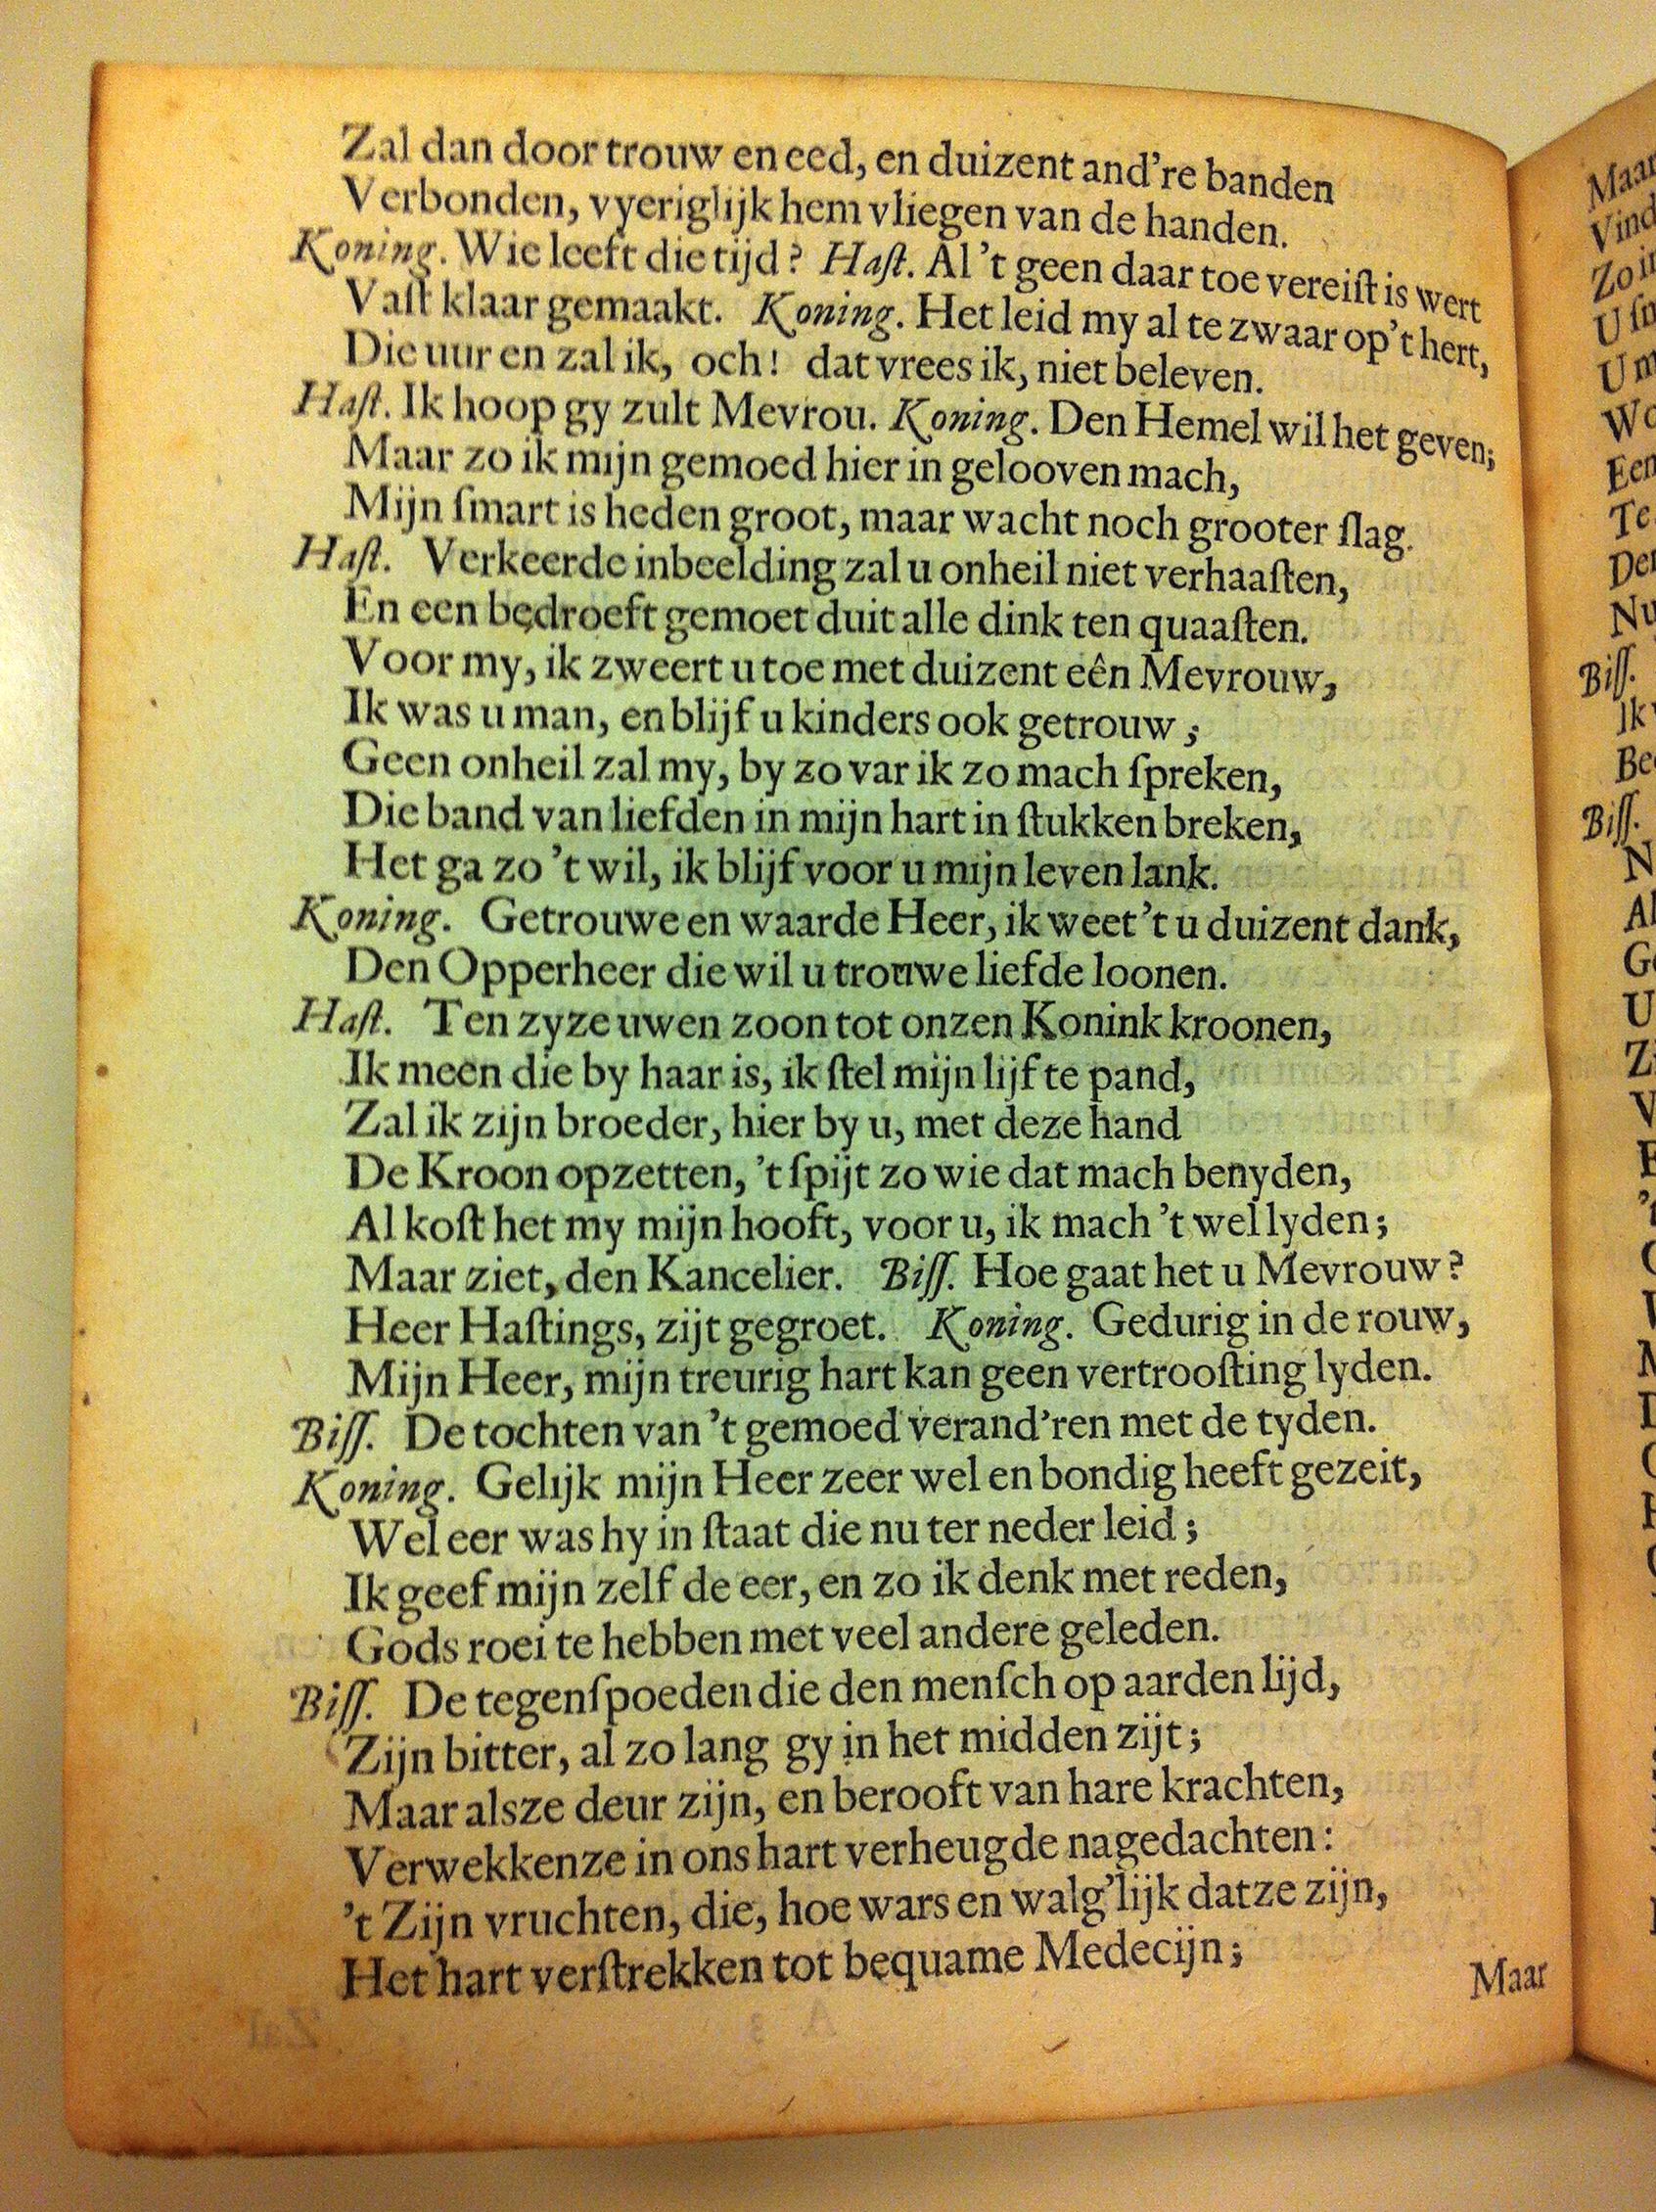 Zal dan door trouw en eed, en duizent and're banden
Verbonden, vyeriglijk hem vliegen van de handen.
Koning. Wie leeft die tijd? Haſt. Al 't geen daar toe vereiſt is wert
Vaſt klaar gemaakt. Koning. Het leid my al te zwaar op 't hert,
Die uur en zal ik, och! dat vrees ik, niet beleven.
Haſt. Ik hoop gy zult Mevrou. Koning. Den Hemel wil het geven;
Maar zo ik mijn gemoed hier in gelooven mach,
Mijn ſmart is heden groot, maar wacht noch grooter ſlag.
Haſt. Verkeerde inbeelding zal u onheil niet verhaaſten,
En een bedroeft gemoet duit alle dink ten quaaſten.
Voor my, ik zweert u toe met duizent eên Mevrouw,
Ik was u man, en blijf u kinders ook getrouw;
Geen onheil zal my, by zo var ik zo mach ſpreken,
Die band van liefden in mijn hart in ſtukken breken,
Het ga zo 't wil, ik blijf voor u mijn leven lank.
Koning. Getrouwe en waarde Heer, ik weet 't u duizent dank,
Den Opperheer die wil u trouwe liefde loonen.
Haſt. Ten zy ze uwen zoon tot onzen Konink kroonen,
Ik meen die by haar is, ik ſtel mijn lijf te pand,
Zal ik zijn broeder, hier by u, met deze hand
De Kroon opzetten, 't ſpijt zo wie dat mach benyden,
Al koſt het my mijn hooft, voor u, ik mach 't wel lyden;
Maar ziet, den Kancelier. Biſſ. Hoe gaat het u Mevrouw?
Heer Haſtings, zijt gegroet. Koning. Gedurig in de rouw,
Mijn Heer, mijn treurig hart kan geen vertrooſting lyden.
Biſſ. De tochten van 't gemoed verand'ren met de tyden.
Koning. Gelijk mijn Heer zeer wel en bondig heeft gezeit,
Wel eer was hy in ſtaat die nu ter neder leid;
Ik geef mijn zelf de eer, en zo ik denk met reden,
Gods roei te hebben met veel andere geleden.
Biſſ. De tegenſpoeden die den menſch op aarden lijd,
Zijn bitter, al zo lang gy in het midden zijt;
Maar alsze deur zijn, en berooft van hare krachten,
Verwekkenze in ons hart verheugde nagedachten:
't Zijn vruchten, die, hoe wars en walg'lijk datze zijn,
Het hart verſtrekken tot bequame Medecijn;
Maar
Maar
Vind
Te
Nu
Biſſ.
Ik
Biſſ.